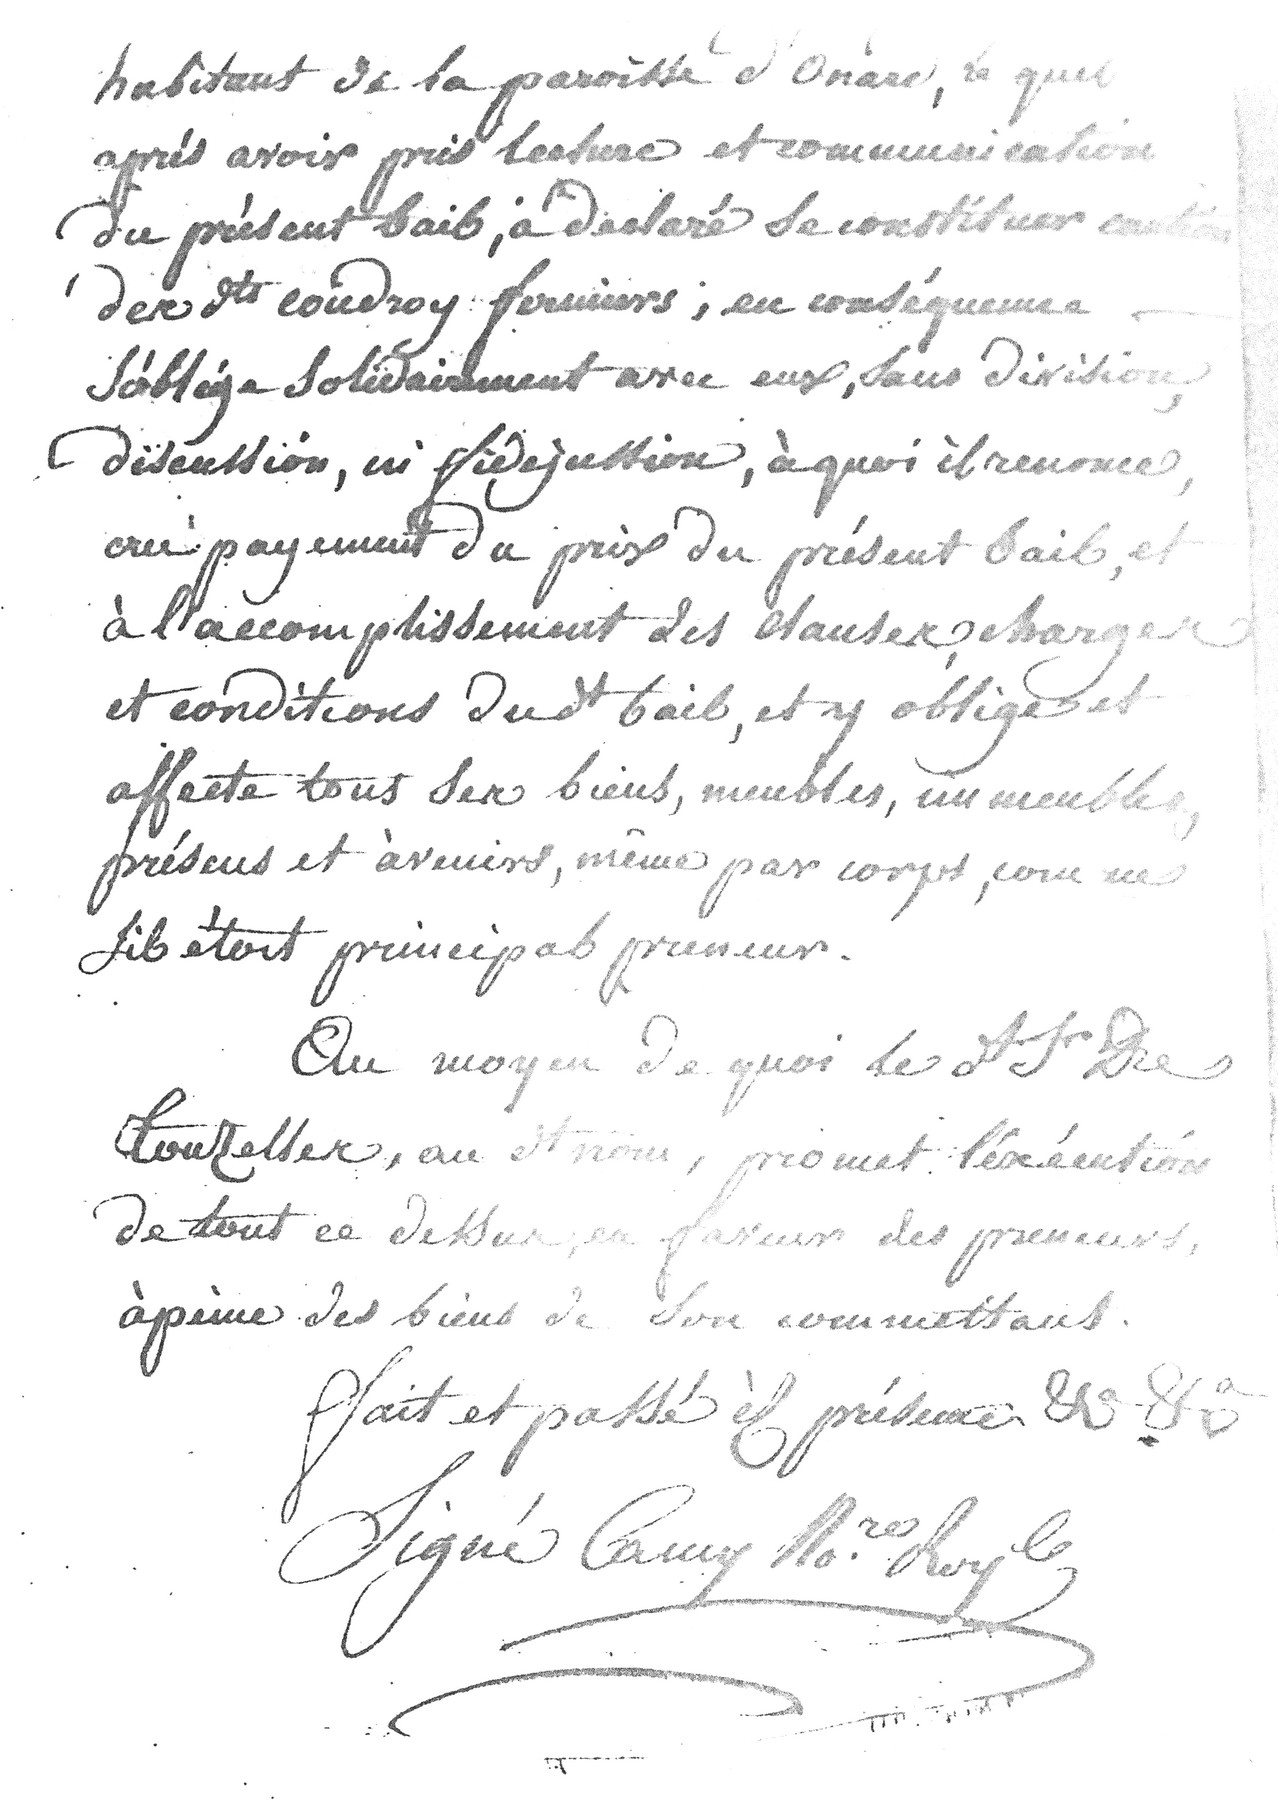 habitant de la paroisse d'Onarc, le quel
après avoir pris lecture et communication
du présent bail, a déclaré se constituer caution
des dts Coudroy fermiers; en conséquence
s'oblige solidairement avec eux, sans division,
discussion, ni fidéjussion, à quoi il renonce,
au payement du prix du présent bail, et
à l'accomplissement des clauses, charges
et conditions du dt bail, et y oblige et
affecte tous ses biens, meubles, immeubles,
présens et àvenirs, même par corps, comme
s'il étoit principal preneur.
Au moyen de quoi le dt Sr De
, au dt nom, promet l'éxécution
de tout ce dessus, en faveur des preneurs,
àpeine des biens de son commettant.
fait et passé èz présence &a &a
Signé Camy No.re Roy.l